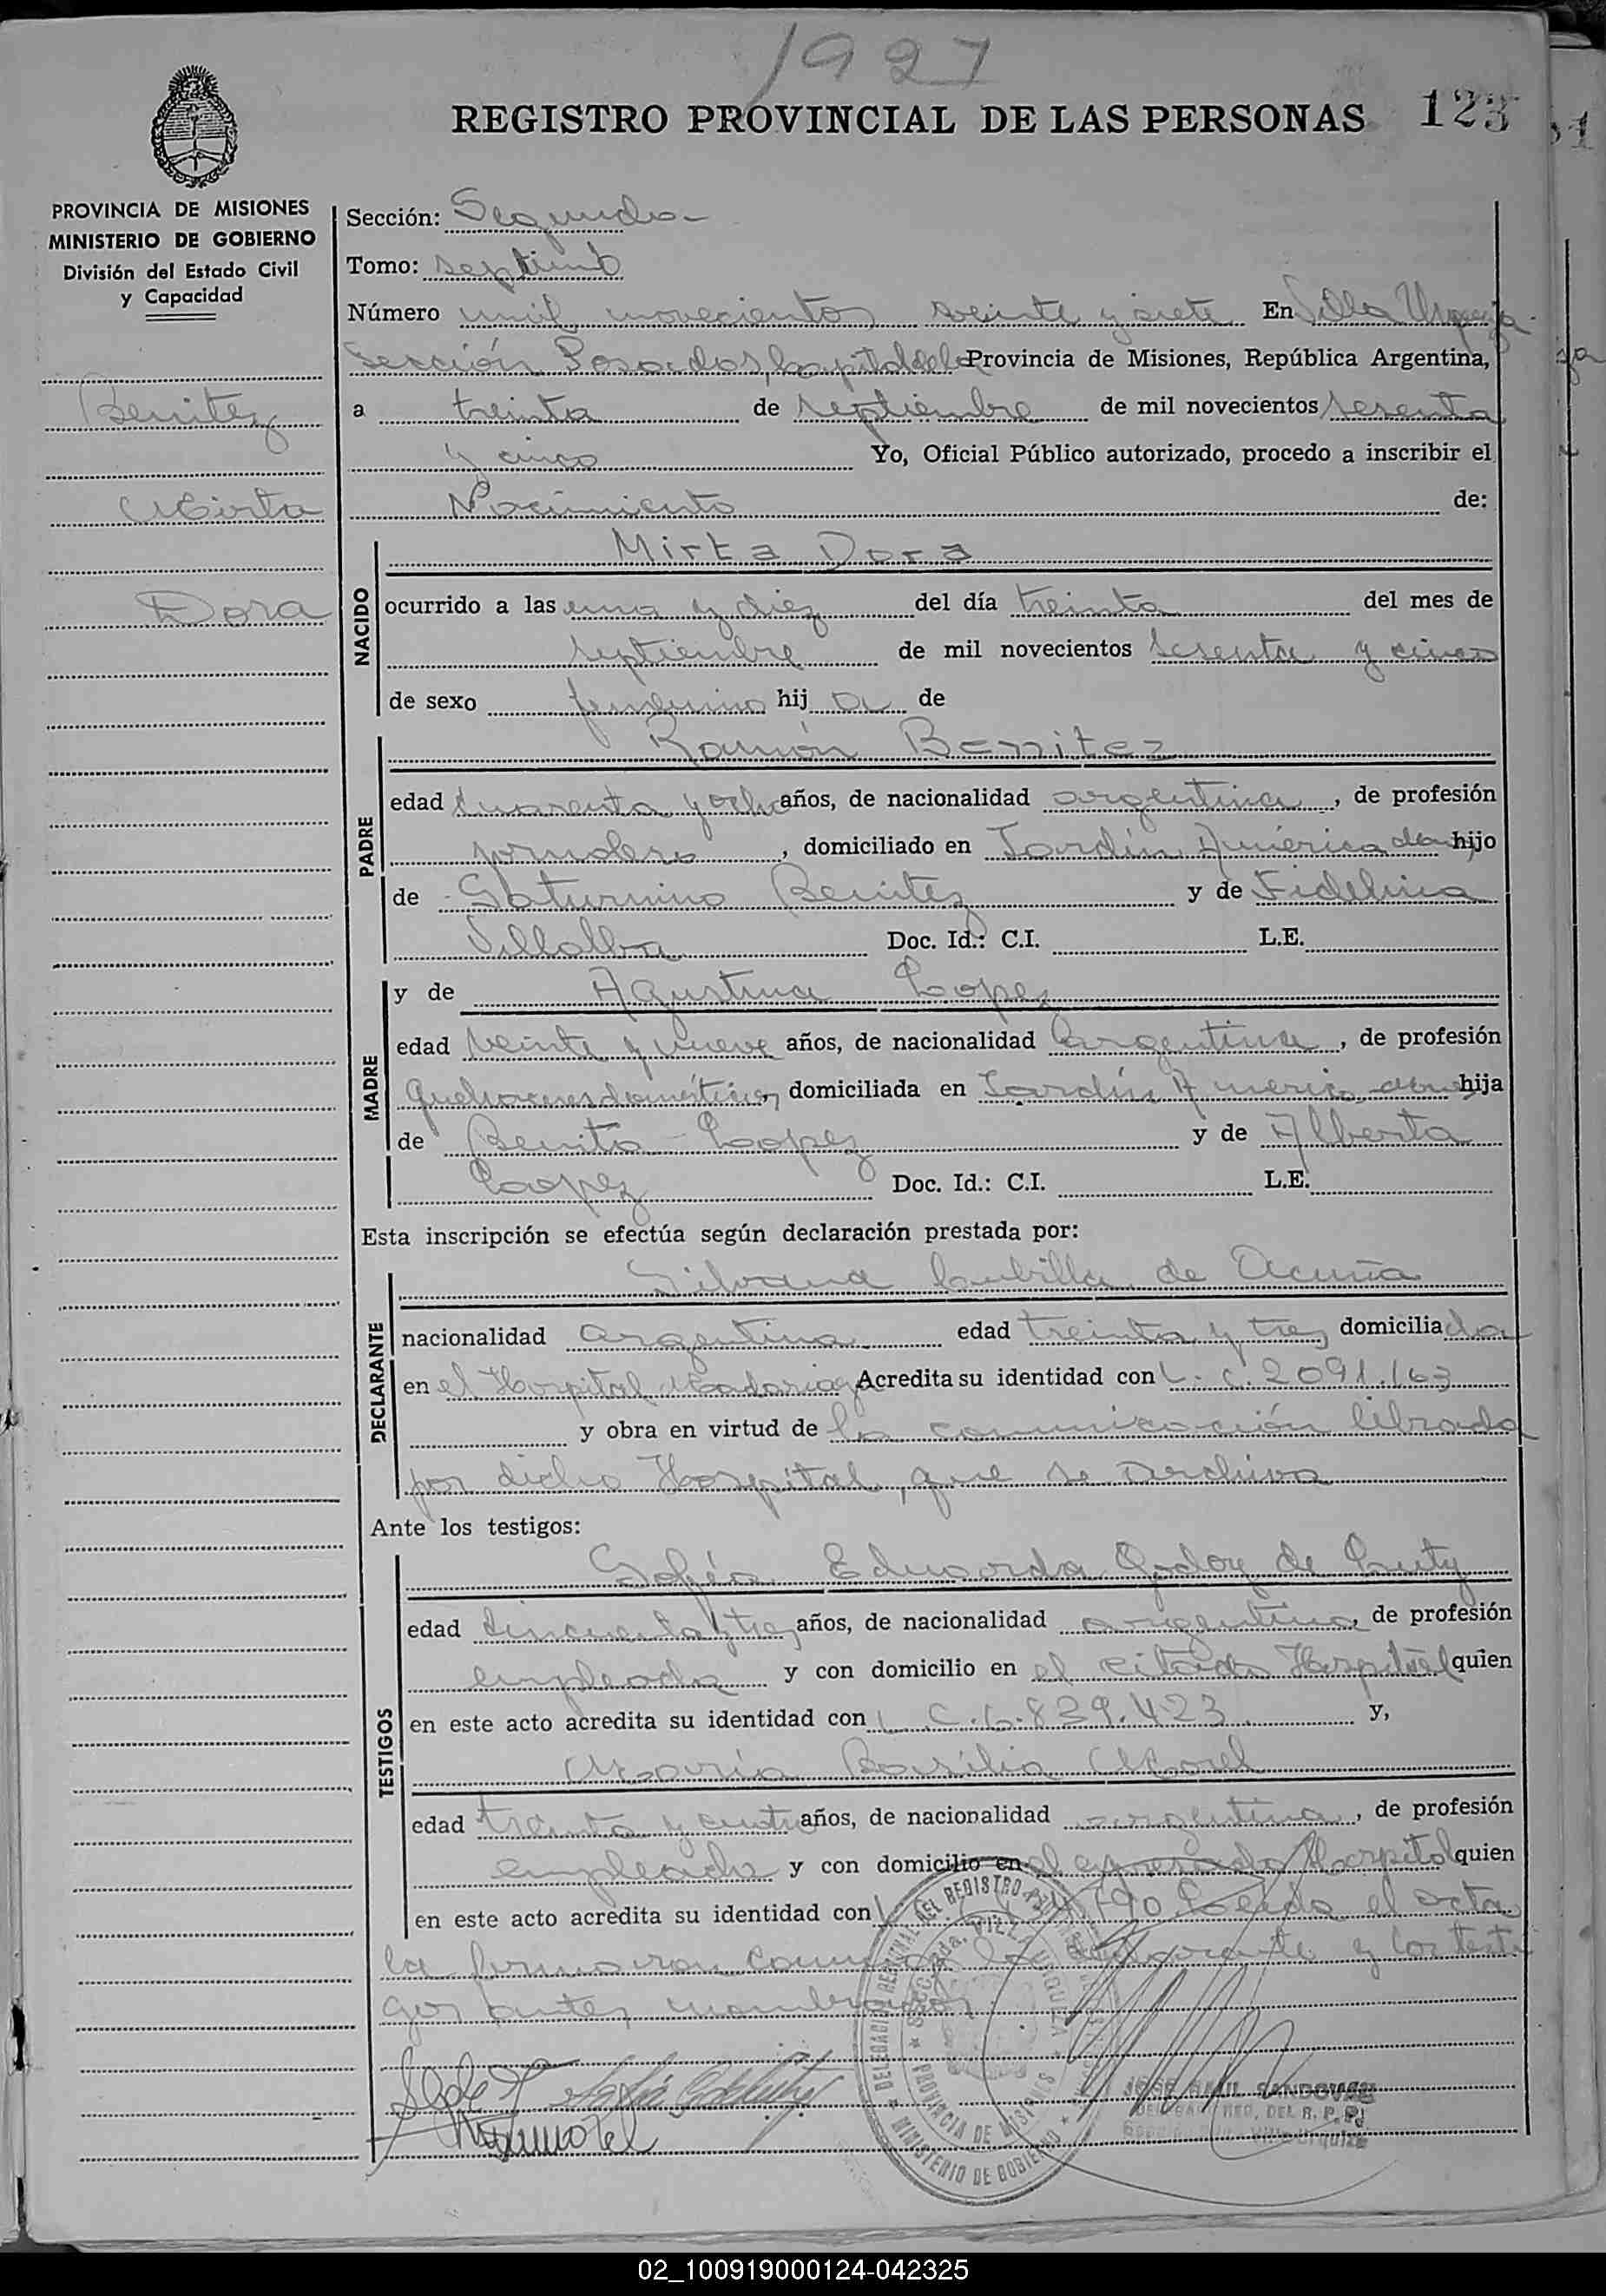 1927
REGISTRO PROVINCIAL DE LAS PERSONAS 123
PROVINCIA DE MISIONES
MINISTERIO DE GOBIERNO
División del Estado Civil
y Capacidad
Benitez
Mirta
Dora
Sección: Segunda
Tomo: septimo
Número mil novecientos veinte y siete En Villa Urquiza
Sección Posadas, Capital de la Provincia de Misiones, República Argentina,
a treinta de septiembre de mil novecientos sesenta
y cinco Yo, Oficial Público autorizado, procedo a inscribir el
Nacimiento de:
NACIDO
Mirta Dora
ocurrido a las una y diez del día treinta del mes de
septiembre de mil novecientos sesenta y cinco
de sexo femenino hija de
PADRE
Ramón Benitez
edad cuarenta y ocho años, de nacionalidad argentina, de profesión
jornalero, domiciliado en Jardín América hijo
de Saturnino Benitez y de Fidelina
Villalba Doc. Id.: C.I. L.E.
MADRE
y de Agustina Lopez
edad veinte y nueve años, de nacionalidad argentina, de profesión
quehaceres domésticos, domiciliada en Jardín América hija
de Benito Lopez y de Alberta
Lopez Doc. Id.: C.I. L.E.
Esta inscripción se efectúa según declaración prestada por:
DECLARANTE
Silvana Cubilla de Acuña
nacionalidad argentina edad treinta y tres domiciliada
en el Hospital Madariaga Acredita su identidad con L.C. 2091.163
y obra en virtud de la comunicación librada
por dicho Hospital, que se archiva
Ante los testigos:
TESTIGOS
Sofía Eduarda Godoy de Cuty
edad cincuenta y tres años, de nacionalidad argentina, de profesión
empleada y con domicilio en el citado Hospital quien
en este acto acredita su identidad con L.C. 6.839.423 y,
María Basilia Morel
edad treinta y cuatro años, de nacionalidad argentina, de profesión
empleada y con domicilio en el expresado Hospital quien
en este acto acredita su identidad con 790 Leida el acta
la firmaron conmigo la declarante y los testi
gos antes nombrados
DELEGACIÓN REGIONAL DEL REGISTRO
VILLA URQUIZA
PROVINCIA DE MISIONES
MINISTERIO DE GOBIERNO
JOSE RAUL SANDOVAL
REG. DEL R. P. P.
Villa Urquiza
02_100919000124-042325